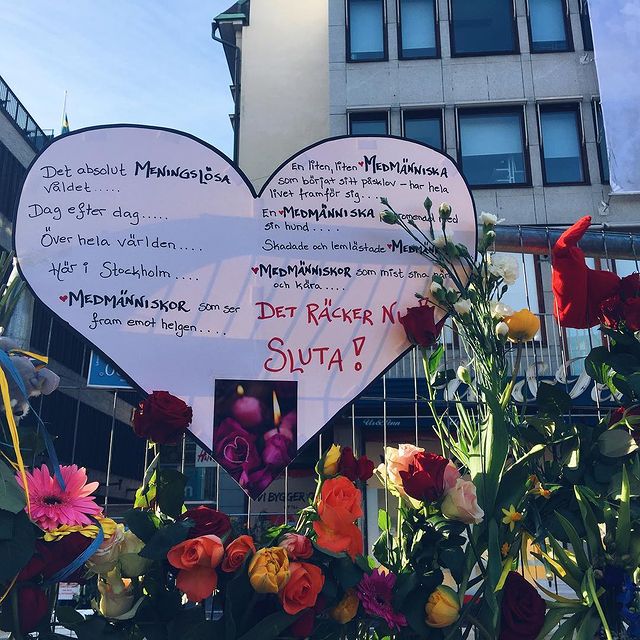 Det absolut MENINGSLÖSA
våldet.....
Dag efter dag.....
Över hela världen....
Här i Stockholm....
MEDMÄNNISKOR som ser
fram emot helgen....
En liten, liten MEDMÄNNISKA
som börjat sitt påsklov - har hela
livet framför sig....
En MEDMÄNNISKA promenad med
sin hund....
Skadade och lemlästade
MEDMÄNNISKOR som mist sina
och kära....
DET RÄCKER
SLUTA!
VI BYGGER